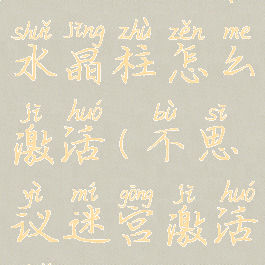 shuǐ jīng zhù zěn me
水晶柱怎么
jī huó bù sī
激活(不思
yì mí gōng jī huó
议迷宫激活